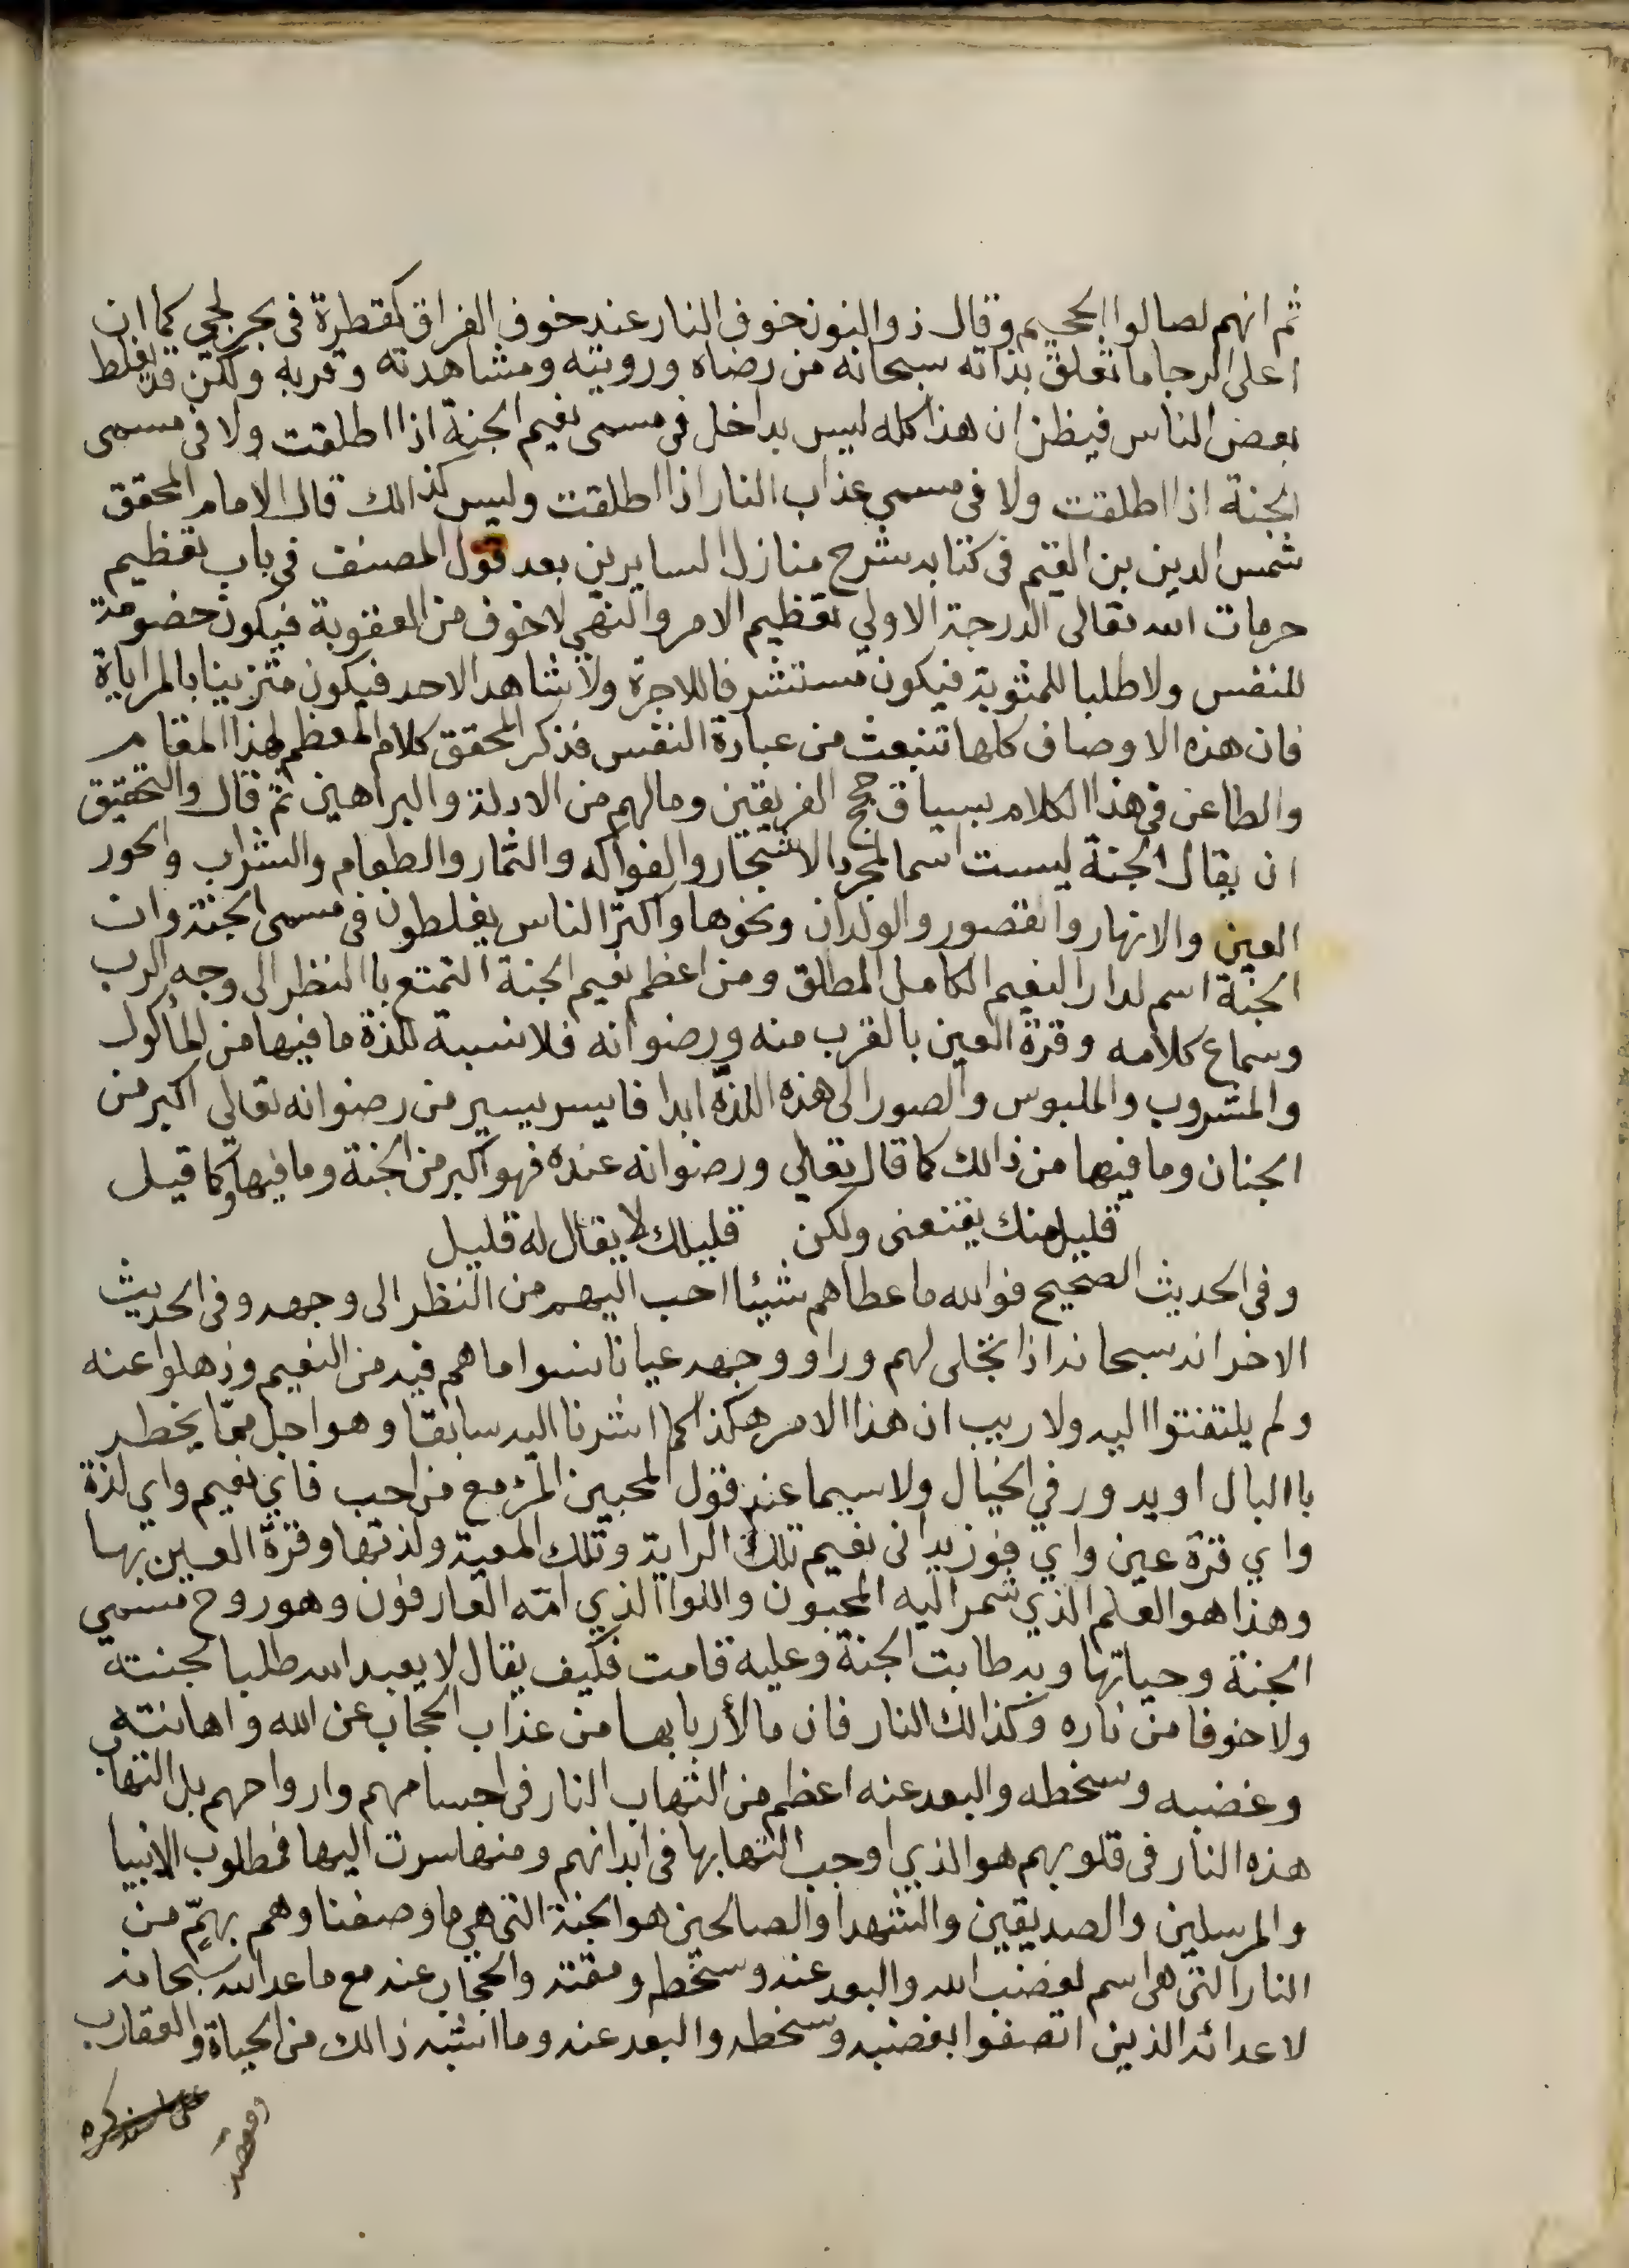 ثم انهم لصالوا الجحيم وقال ذو النون خوف النار عند خوف الفراق كقطرة في بحر لجي كما ان
اعلى الرجا ما تعلق بذاته سبحانه من رضاه ورويته ومشاهدته وقربه ولكن قد يغلط
بعض الناس فيظن ان هذا كله ليس بداخل في مسمى نعيم الجنة اذا اطلقت ولا في مسمى
الجنة اذا اطلقت ولا في مسمى عذاب النار اذا اطلقت وليس كذالك قال الامام المحقق
شمس الدين بن القيم في كتابه شرح منازل السايرين بعد قول المصنف في باب تعظيم
حرمات الله تعالى الدرجة الاولي تعظيم الامر والنهي لا خوف من العقوبة فيكون خصومة
للنفس ولا طلبا للمثوبة فيكون مستشرفا للاجرة ولا شاهد الاحد فيكون متزينا بالمراياة
فان هذه الاوصاف كلها تنبعث من عبادة النفس فذكر المحقق كلام المعظم لهذا المقام
والطاعن في هذا الكلام بسياق حجج الفريقين ومالهم من الادلة والبراهين ثم قال والتحقيق
ان يقال الجنة ليست اسما لمجرد الاشجار والفواكه والثمار والطعام والشراب والحور
العين والانهار والقصور والولدان ونحوها واكثر الناس يغلطون في مسمى الجنة وان
الجنة اسم لدار النعيم الكامل المطلق ومن اعظم نعيم الجنة التمتع باالنظر الى وجه الرب
وسماع كلامه وقرة العين بالقرب منه ورضوانه فلا نسبة للذة ما فيها من المأكول
والمشروب والملبوس والصور الى هذه اللذة ابدا فايسر يسير من رضوانه تعالي اكبر من
الجنان وما فيها من ذالك كما قال تعالي ورضوانه عنده فهو اكبر من الجنة وما فيها وكما قيل
قليل منك يقنعني ولكن قليلك لا يقال له قليل
وفي الحديث الصحيح فوالله ما عطاهم شيئا احب اليهم من النظر الى وجهه وفي الحديث
الاخر انه سبحانه اذا تجلى لهم وراو وجهه عيانا نسوا ما هم فيه من النعيم وذهلوا عنه
ولم يلتفتوا اليه ولا ريب ان هذا الامر هكذا كما اشرنا اليه سابقا وهو اجل مما يخطر
باالبال او يدور في الخيال ولا سيما عند قول المحبين المرؤ مع من احب فاي نعيم واي لذة
واي قرة عين واي فوز يداني نعيم تلك الراية وتلك المعية ولذتها وقرة العين بها
وهذا هو العلم الذي شمر اليه المحبون واللوا الذي امّه العارفون وهو روح مسمى
الجنة وحياتها وبه طابت الجنة وعليه قامت فكيف يقال لا يعبد الله طلبا لجنته
ولا خوفا من ناره وكذالك النار فان ما لأربابها من عذاب الحجاب عن الله واهانته
وغضبه وسخطه والبعد عنه اعظم من التهاب النار في اجسامهم وارواحهم بل التهاب
هذه النار في قلوبهم هو الذي اوجب التهابها في ابدانهم ومنها سرت اليها فمطلوب الانبيا
والمرسلين والصديقين والشهدا والصالحين هو الجنة التي هي ما وصفنا وهم بهمّ من
النار التي هي اسم لغضب الله والبعد عنه وسخطه ومقته والحجاب عنه مع ما عد الله سبحانه
لاعدائه الذين اتصفوا بغضبه وسخطه والبعد عنه وما اشبه ذالك من الحياة والعقارب